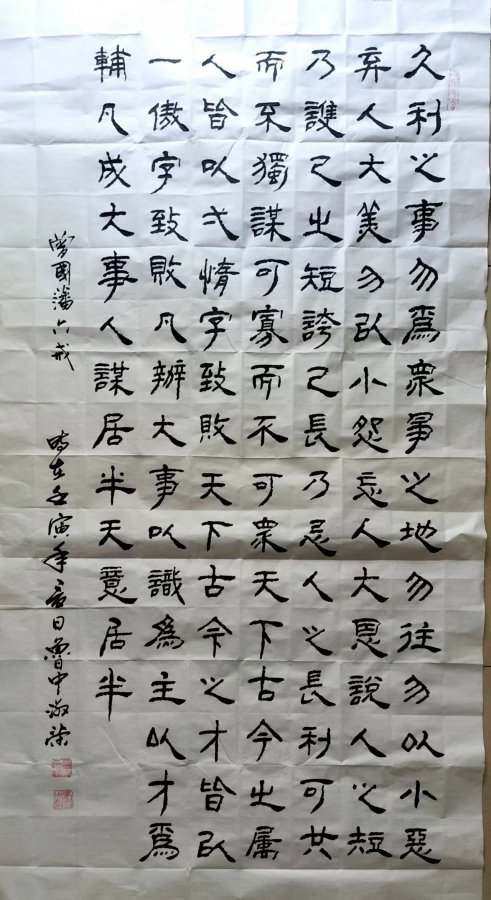 久利之事勿爲衆爭之地勿往勿以小惡
弃人大美勿以小怨忘人大恩說人之短
乃護己之短誇己長乃忌人之長利可共
而不獨謀可寡而不可衆天下古今之庸
人皆以弌惰字致敗天下古今之才皆以
一傲字致敗凡辦大事以識爲主以才爲
輔凡成大事人謀居半天意居半
曾國藩六戒 時在壬寅年夏日魯中淑